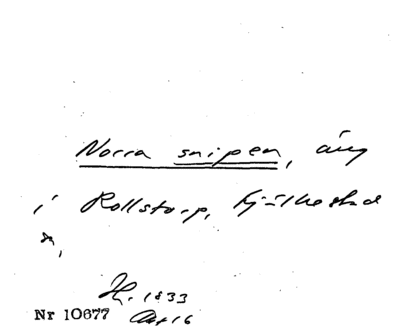 Norra snipen, äng
i Rollstorp, Kjulkestad
sn,
H. 1833
Akt 16
Nr 10677